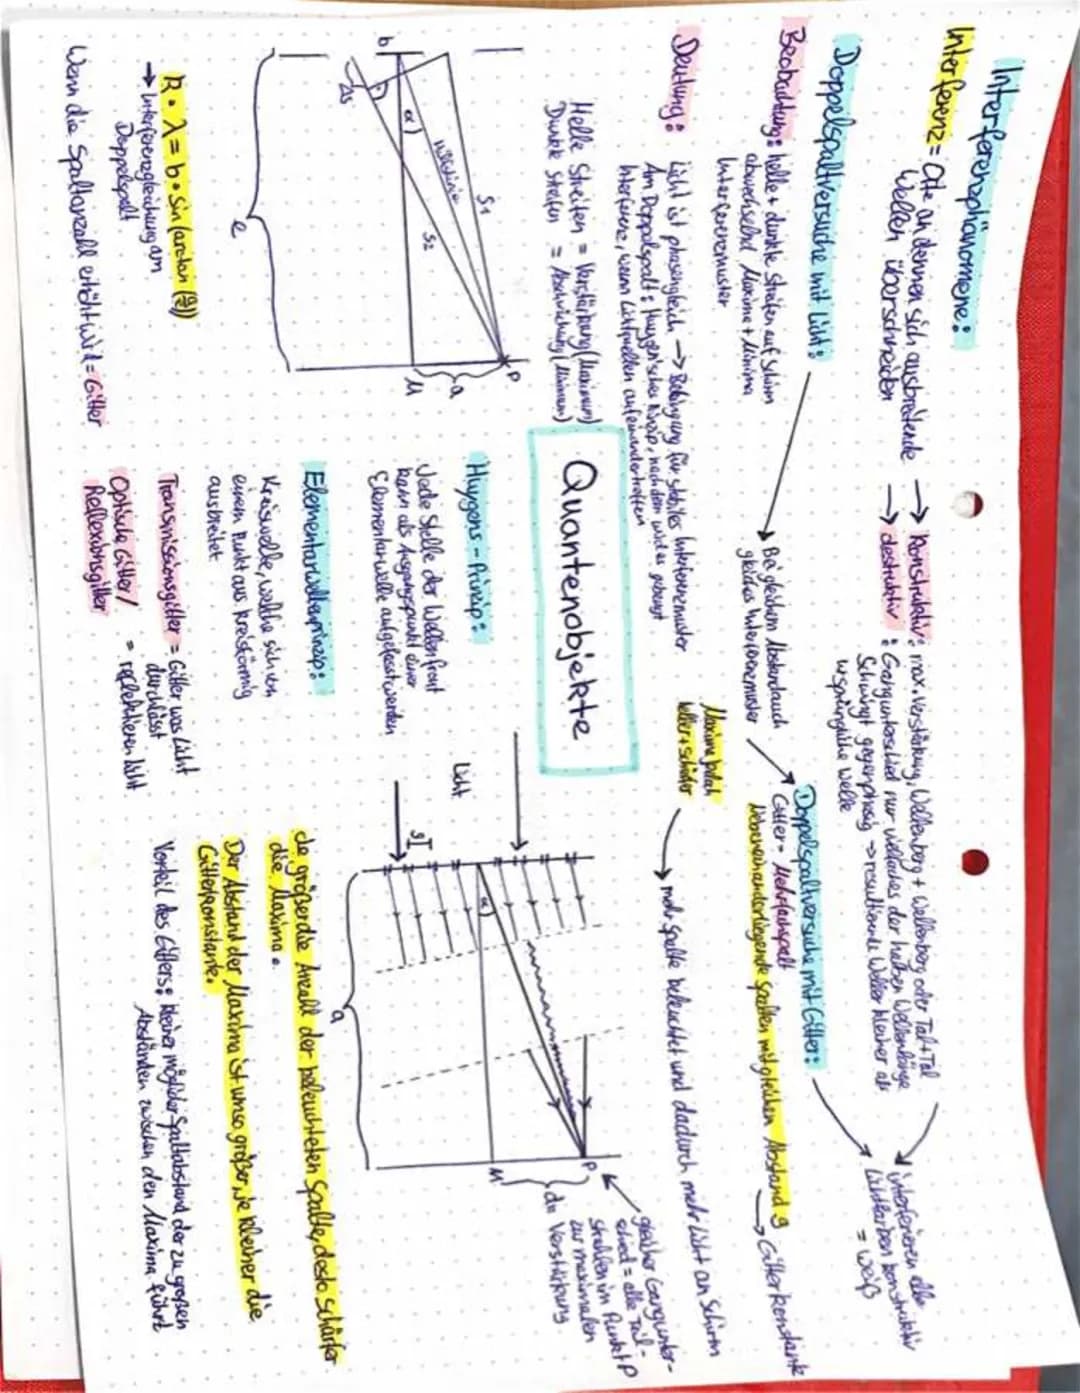 Interferenzphänomene:
Interferenz = Orte an dennen sich ausbreitende
Wellen überschneiden
→ konstruktiv: max. Verstärkung, Wellenberg + Wellenberg oder Tal + Tal
→ destruktiv: Gangunterschied nur vielfaches der halben Wellenlänge
Schwingt gegenphasig → resultierende Welle kleiner als
ursprüngliche Welle
Doppelspaltversuche mit Licht:
Beobachtung: helle + dunkle Streifen auf Schirm
abwechselnd Maxima + Minima
Interferenzmuster
Bei gleichem Abstand auch
gleiches Interferenzmuster
Doppelspaltversuche mit Gitter:
Gitter = Mehrfachspalt
Nebeneinanderliegende Spalten mit gleichen Abstand g
→ Gitterkonstante
interferieren alle
Lichtfarben konstruktiv
= weiß
Deutung: Licht ist phasengleich → Bedingung für stabiles Interferenzmuster
Am Doppelspalt: Huygen'sches Prinzip, nach dem wird es gebeugt
Interferenz, wenn Lichtquellen aufeinandertreffen
Helle Streifen = Verstärkung (Maximum)
Dunkle Streifen = Abschwächung (Minimum)
Maxima jedoch
heller + schärfer
→ mehr Spalte beleuchtet und dadurch mehr Licht an Schirm
Quantenobjekte
b
Δs
α
Mittellinie
S1
S2
e
P
a
M
Huygens-Prinzip:
Jede Stelle der Wellenfront
kann als Ausgangspunkt einer
Elementarwelle aufgefasst werden
Elementarwellenprinzip:
Kreiswelle, welche sich von
einem Punkt aus kreisförmig
ausbreitet
Licht
g
α
a
P
M
d
gleicher Gangunter-
schied = alle Teil-
strahlen im Punkt P
zur maximalen
Verstärkung
k · λ = b · sin (arctan (a/e))
→ Interferenzgleichung am
Doppelspalt
Wenn die Spaltanzahl erhöht wird = Gitter
Transmissionsgitter = Gitter was Licht
durchlässt
Optische Gitter/
Reflexionsgitter = reflektieren Licht
Je größer die Anzahl der beleuchteten Spalte, desto schärfer
die Maxima.
Der Abstand der Maxima ist umso größer, je kleiner die
Gitterkonstante.
Vorteil des Gitters: kleiner möglicher Spaltabstand der zu großen
Abständen zwischen den Maxima führt